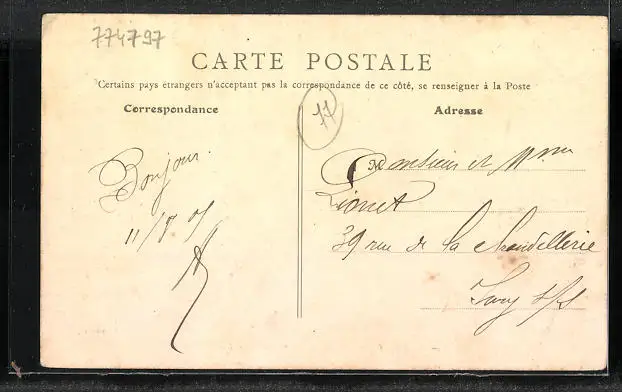 774797
CARTE POSTALE
Certains pays étrangers n'acceptant pas la correspondance de ce côté, se renseigner à la Poste
Correspondance
Adresse
77
Bonjour.
Monsieur et Mme
Lionet
11/8 05
39 rue de la Chandellerie
Ivry s/S